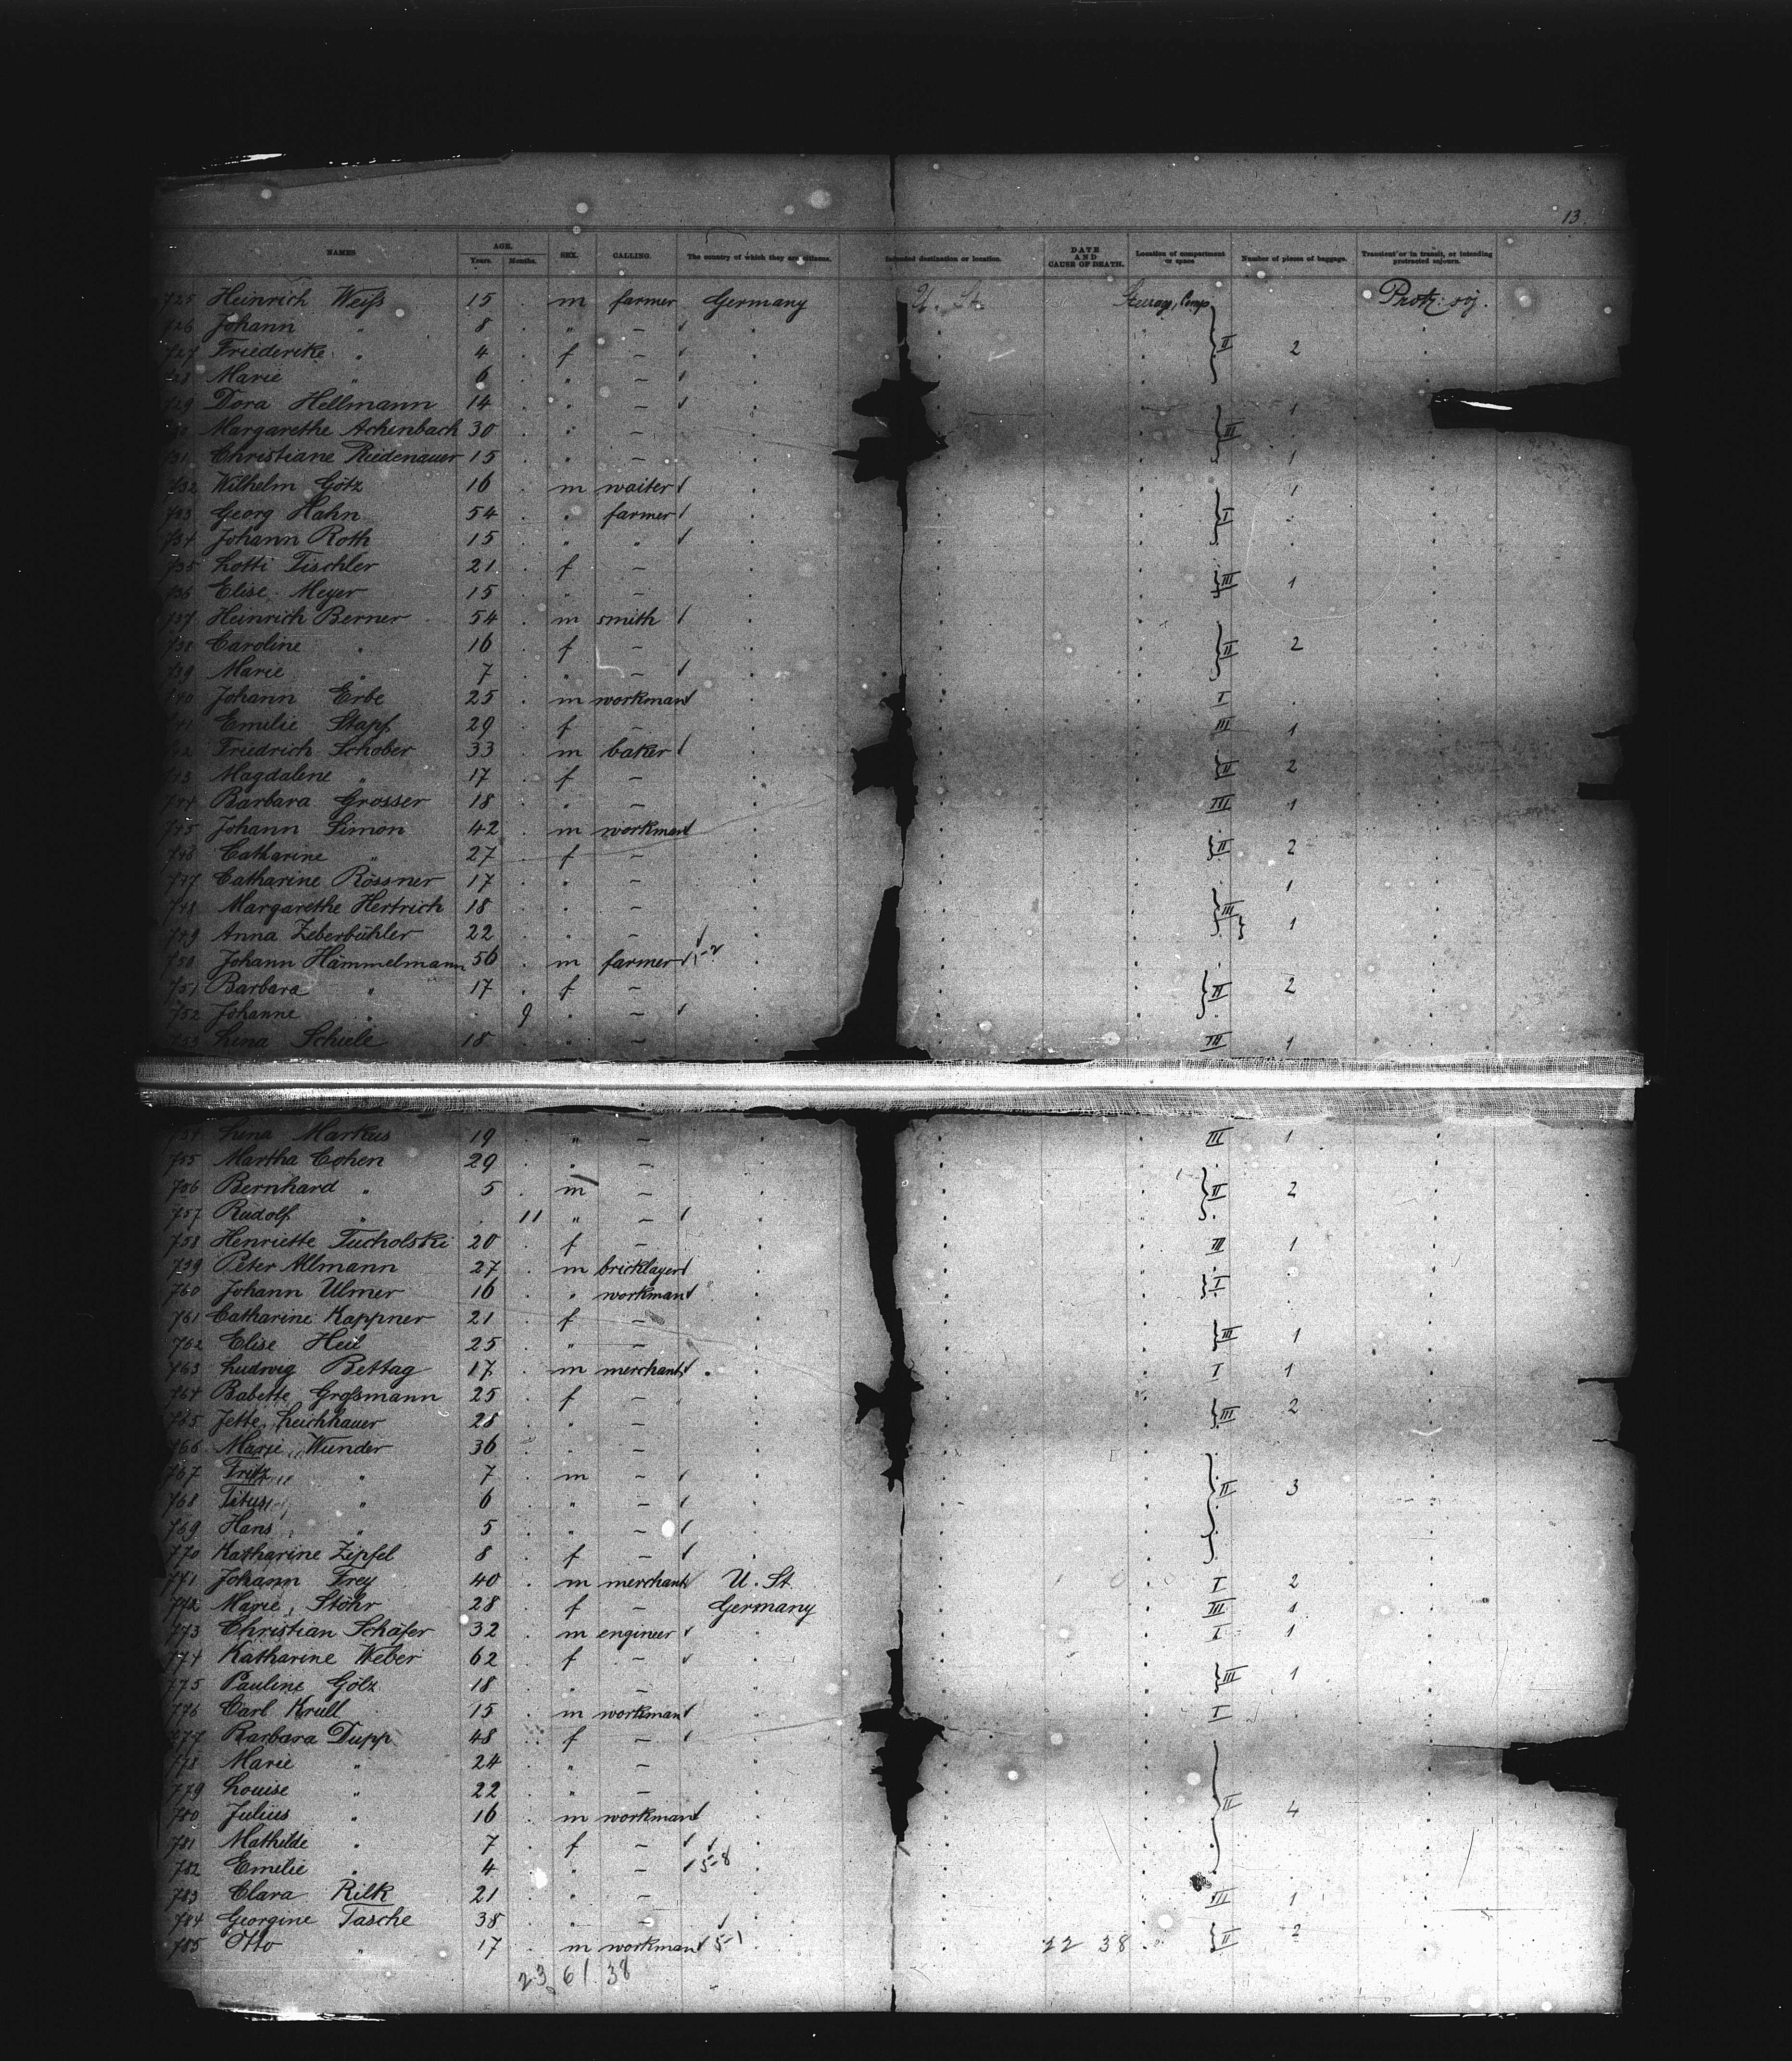 13.
NAMES AGE. Years. Months. SEX. CALLING. The country of which they are citizens. Intended destination or location. DATE AND CAUSE OF DEATH. Location of compartment or space Number of pieces of baggage. Transient or in transit, or intending protracted sojourn.
725 Heinrich Weiß 15 m farmer Germany U. St. Steerage, Comp Protr: soj.
726 Johann " 8 " –
727 Friederike " 4 f – II 2
728 Marie " 6 " –
729 Dora Hellmann 14 " – 1
730 Margarethe Achenbach 30 " – III
731 Christiane Riedenauer 15 " – 1
732 Wilhelm Götz 16 m waiter 1
733 Georg Hahn 54 " farmer I
734 Johann Roth 15 " "
735 Lotti Tischler 21 f –
736 Elise Meyer 15 " – III 1
737 Heinrich Berner 54 m smith
738 Caroline " 16 f – II 2
739 Marie " 7 " –
740 Johann Erbe 25 m workman I
741 Emilie Stapf 29 f – III 1
742 Friedrich Schober 33 m baker
743 Magdalene " 17 f – II 2
744 Barbara Grosser 18 " – III 1
745 Johann Simon 42 m workman
746 Catharine " 27 f – II 2
747 Catharine Rössner 17 " – 1
748 Margarethe Hertrich 18 " – III
749 Anna Zeberbühler 22 " – 1
750 Johann Hämmelmann 56 m farmer
751 Barbara " 17 f – II 2
752 Johanne " 9 " –
753 Lina Schiele 18 " – III 1
754 Lina Markus 19 " – III 1
755 Martha Cohen 29 " –
756 Bernhard " 5 m – II 2
757 Rudolf " 11 " –
758 Henriette Tucholski 20 f – III 1
759 Peter Allmann 27 m bricklayer
760 Johann Ulmer 16 " workman I
761 Catharine Kappner 21 f –
762 Elise Heil 25 " – III 1
763 Ludwig Bettag 17 m merchant I 1
764 Babette Großmann 25 f – 2
765 Jette Leichhauer 28 " – III
766 Marie Wunder 36 " –
767 Fritz " 7 m – II 3
768 Titus " 6 " –
769 Hans " 5 " –
770 Katharine Zipfel 8 f –
771 Johann Frey 40 m merchant U. St. I 2
772 Marie Stöhr 28 f – Germany III 1
773 Christian Schäfer 32 m engineer I 1
774 Katharine Weber 62 f –
775 Pauline Gölz 18 " – III 1
776 Carl Krull 15 m workman I
777 Barbara Dupp 48 f –
778 Marie " 24 " –
779 Louise " 22 " –
780 Julius " 16 m workman II 4
781 Mathilde " 7 f –
782 Emilie " 4 " – 5-8
783 Clara Rilk 21 " – III 1
784 Georgine Tasche 38 " – 2
785 Otto " 17 m workman 5-1 22 38 II
23 61 38